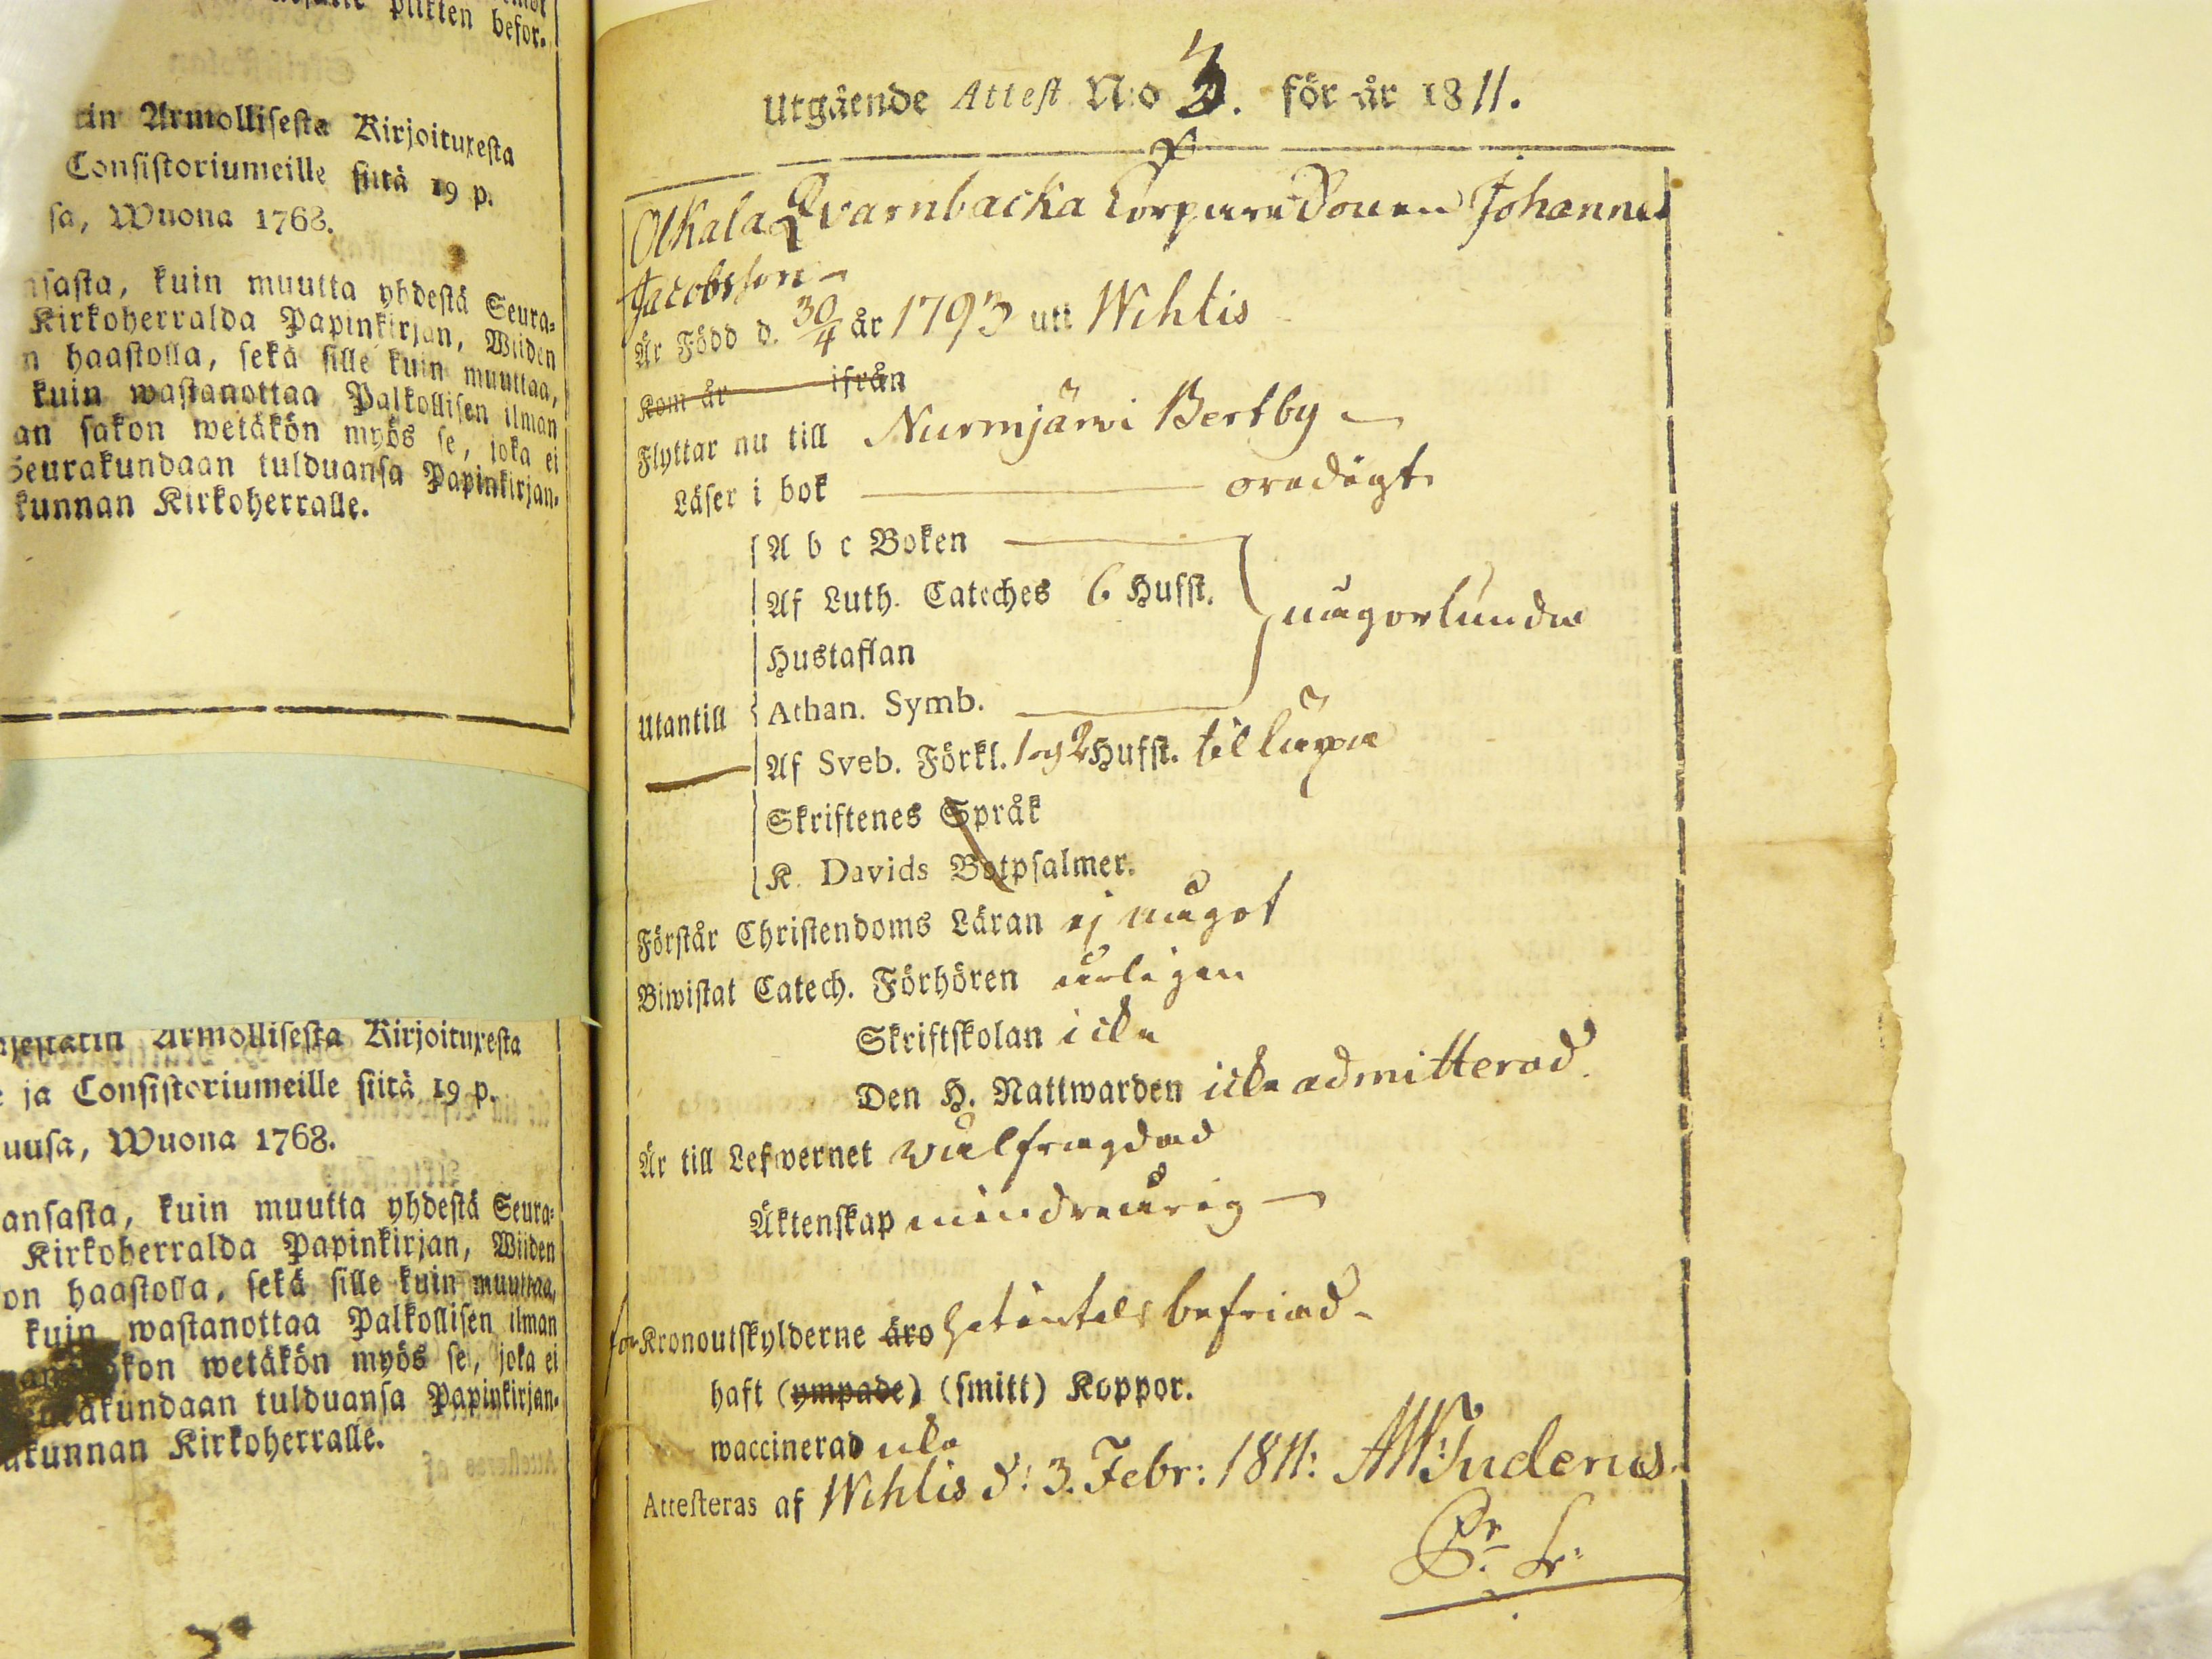 plikten befor=
tin Armollisesta Kirjoituxesta
Consistoriumeille siitä 19 p.
sa, Wuona 1768.
nsasta, kuin muutta yhdestä Seura=
Kirkoherralda Papinkirjan, Wiiden
n haastolla, sekä sille kuin muuttaa,
kuin wastanottaa Palkollisen ilman
an sakon wetäkön myös se, joka ei
Seurakundaan tulduansa Papinkirjan=
kunnan Kirkoherralle.
jestatin Armollisesta Kirjoituxesta
e ja Consistoriumeille siitä 19 p.
uusa, Wuona 1768.
ansasta, kuin muutta yhdestä Seura=
Kirkoherralda Papinkirjan, Wiiden
on haastolla, sekä sille kuin muuttaa,
kuin wastanottaa Palkollisen ilman
kon wetäkön myös se, joka ei
urakundaan tulduansa Papinkirjan=
akunnan Kirkoherralle.
Utgående Attest N:o 3. för år 1811.
Olkala Qvarnbacka Torpare Sonen Johannes
Jacobsson
Är Född d. 30/4 år 1793 uti Wihtis
Kom år ifrån
Flyttar nu till Nurmjärvi Bertby
Läser i bok oredigt
A b c Boken
Af Luth. Cateches 6 Hufst. någorlunda
Hustaflan
Utantill Athan. Symb.
Af Sveb. Förkl. 1 og 2 Hufst. til lüpa
Skriftenes Språk
K. Davids Botpsalmer.
Förstår Christendoms Läran ej något
Biwistat Catech. Förhören årligen
Skriftskolan icke
Den H. Nattwarden icke admitterad.
Är till Lefwernet wälfrägdad
Äktenskap minderårig
för Kronoutskylderne äro hetintils befriad
haft (ympade) (smitt) Koppor.
waccinerad icke
Attesteras af Wihtis d: 3. Febr: 1811: